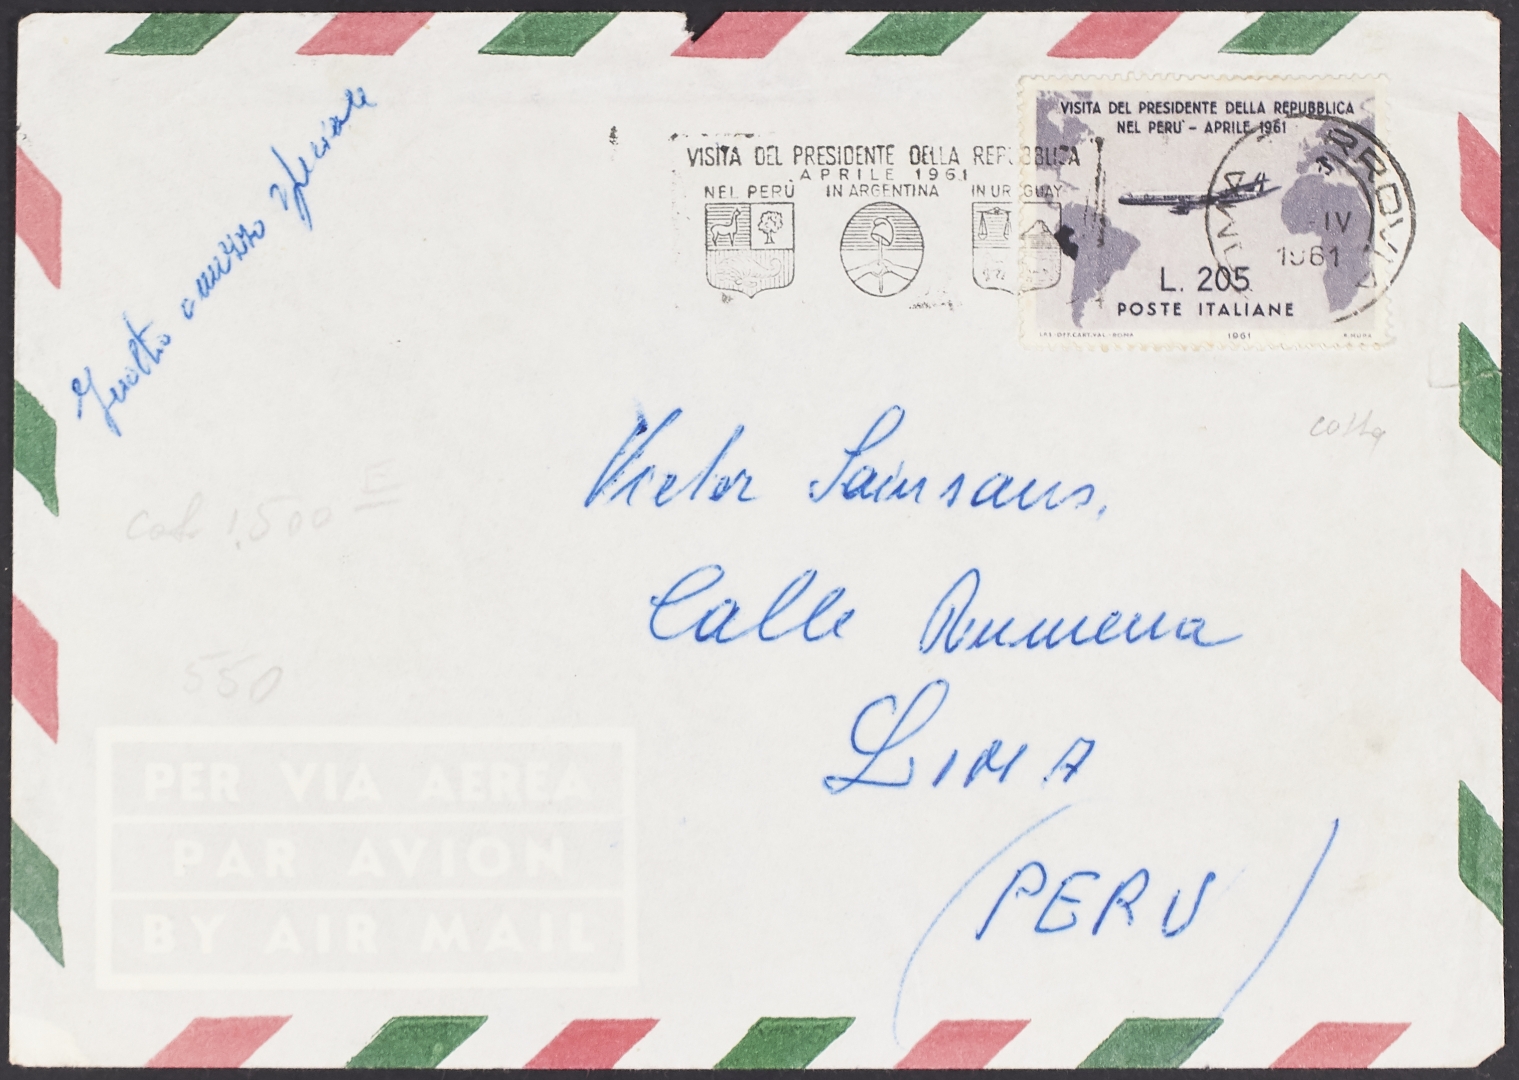 VISITA DEL PRESIDENTE DELLA REPUBBLICA
NEL PERÙ - APRILE 1961
L. 205
POSTE ITALIANE
IST. POLI. CART. VAL. ROMA 1961 R. MURA
VISITA DEL PRESIDENTE DELLA REPUBBLICA
APRILE 1961
NEL PERÙ IN ARGENTINA IN URUGUAY
ROMA FERROVIA
-IV
1961
Inoltro a mezzo speciale
costa
Victor Sainsaus,
Calle
LIMA
(PERU)
Cat. 1.500
550
PER VIA AEREA
PAR AVION
BY AIR MAIL